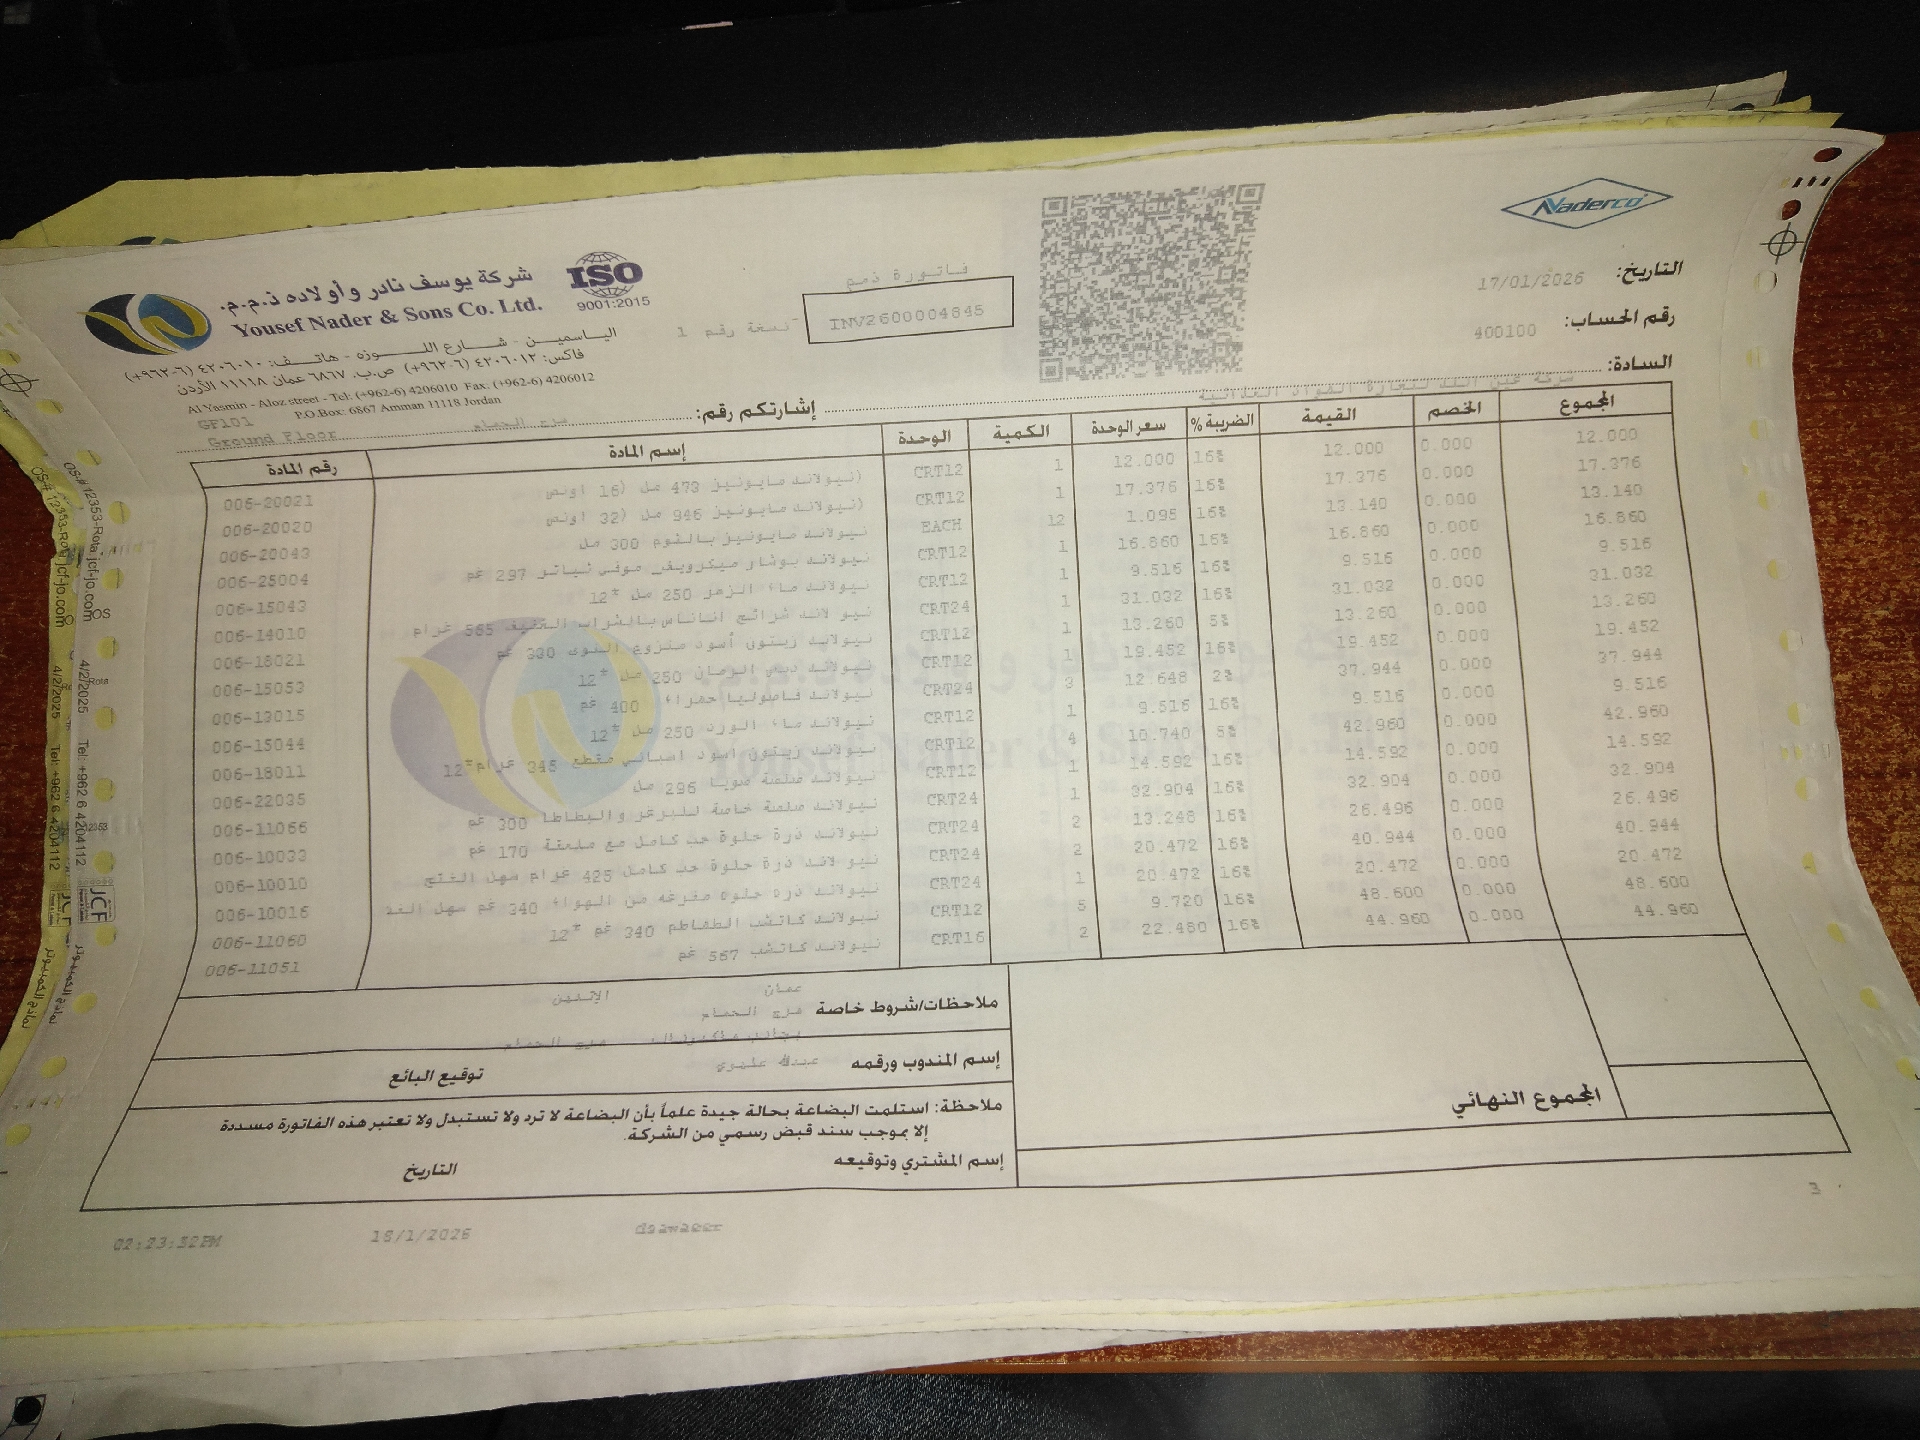 Naderco
التاريخ: 17/01/2026
رقم الحساب: 400100
السادة: شركة عين البلد لتجارة المواد الغذائية
فاتورة ذمم
INV2600004845
نسخة رقم 1
ISO
9001:2015
شركة يوسف نادر وأولاده ذ.م.م.
Yousef Nader & Sons Co. Ltd.
الياسمين - شارع اللوزه - هاتف: ٤٢٠٦٠١٠ (٦-٩٦٢+)
فاكس: ٤٢٠٦٠١٢ (٦-٩٦٢+) ص.ب. ٦٨٦٧ عمان ١١١١٨ الأردن
Al Yasmin - Aloz street - Tel: (+962-6) 4206010 Fax: (+962-6) 4206012
P.O.Box: 6867 Amman 11118 Jordan
GF101
Ground Floor
مرج الحمام
إشارتكم رقم:
رقم المادة إسم المادة الوحدة الكمية سعر الوحدة الضريبة % القيمة الخصم المجموع
006-20021 نيولاند مايونيز 473 مل (16 اونص) CRT12 1 12.000 16% 12.000 0.000 12.000
006-20020 نيولاند مايونيز 946 مل (32 اونص) CRT12 1 17.376 16% 17.376 0.000 17.376
006-20043 نيولاند مايونيز بالثوم 300 مل EACH 12 1.095 16% 13.140 0.000 13.140
006-25004 نيولاند بوشار ميكرويف موفي ثياتر 297 غم CRT12 1 16.860 16% 16.860 0.000 16.860
006-15043 نيولاند ماء الزهر 250 مل *12 CRT12 1 9.516 16% 9.516 0.000 9.516
006-14010 نيو لاند شرائح اناناس بالشراب الخفيف 565 غرام CRT24 1 31.032 16% 31.032 0.000 31.032
006-18021 نيولاند زيتون أسود منزوع النوى 330 غم CRT12 1 13.260 5% 13.260 0.000 13.260
006-15053 نيولاند دبس الرمان 250 مل *12 CRT12 1 19.452 16% 19.452 0.000 19.452
006-13015 نيولاند فاصوليا حمراء 400 غم CRT24 3 12.648 2% 37.944 0.000 37.944
006-15044 نيولاند ماء الورد 250 مل *12 CRT12 1 9.516 16% 9.516 0.000 9.516
006-18011 نيولاند زيتون اسود اسباني مقطع 345 غرام*12 CRT12 4 10.740 5% 42.960 0.000 42.960
006-22035 نيولاند صلصة صويا 296 مل CRT12 1 14.592 16% 14.592 0.000 14.592
006-11066 نيولاند صلصة خاصة للبرغر والبطاطا 300 غم CRT24 1 32.904 16% 32.904 0.000 32.904
006-10033 نيولاند ذرة حلوة حب كامل مع ملعقة 170 غم CRT24 2 13.248 16% 26.496 0.000 26.496
006-10010 نيو لاند ذرة حلوة حب كامل 425 غرام سهل الفتح CRT24 2 20.472 16% 40.944 0.000 40.944
006-10016 نيولاند ذره حلوه مفرغه من الهواء 340 غم سهل الفت CRT24 1 20.472 16% 20.472 0.000 20.472
006-11060 نيولاند كاتشب الطماطم 340 غم *12 CRT12 5 9.720 16% 48.600 0.000 48.600
006-11051 نيولاند كاتشب 567 غم CRT16 2 22.480 16% 44.960 0.000 44.960
ملاحظات/شروط خاصة عمان الإثنين
مرج الحمام
مرج الحمام
إسم المندوب ورقمه توقيع البائع
المجموع النهائي
ملاحظة: استلمت البضاعة بحالة جيدة علماً بأن البضاعة لا ترد ولا تستبدل ولا تعتبر هذه الفاتورة مسددة
إلا بموجب سند قبض رسمي من الشركة.
إسم المشتري وتوقيعه التاريخ
3
02:23:32PM 18/1/2026 daawaeer
OS-# 12353-Rota jcf-jo.com 4/2/2025 Tel: +962 6 4204112 JCF